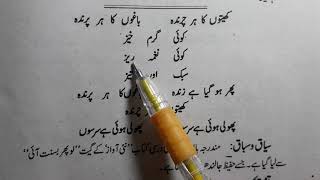 کھیتوں کا ہر چرندہ باغوں کا ہر پرندہ
کوئی گرم خیز
کوئی نغمہ ریز
سبک اور تیز
پھر ہو گیا ہے زندہ باغوں کا ہر پرندہ
کھیتوں چرندہ
پھولی ہوئی ہے سرسوں پھولی ہوئی ہے سرسوں
سیاق و سباق: مندرجہ بالا درسی کتاب "نئی آواز" کے گیت "لو پھر بسنت آئی"
سے لیا گیا ہے۔ جسے حفیظ جالندھری